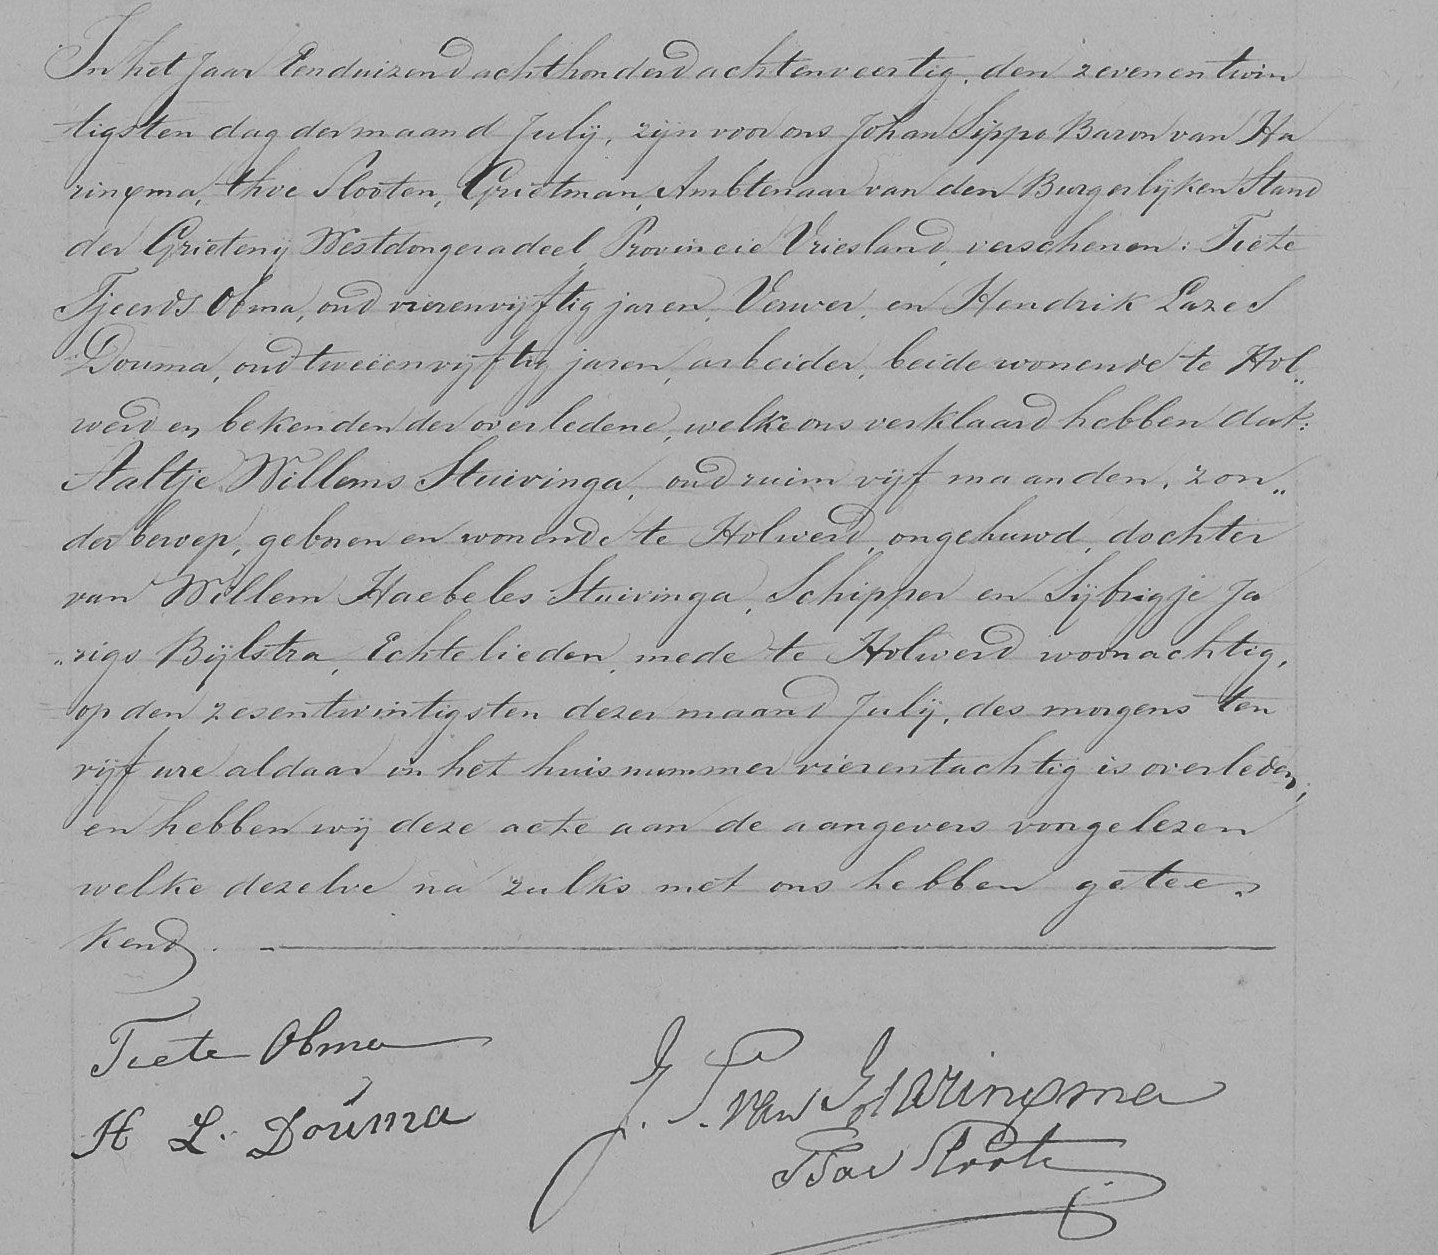 In het Jaar Eenduizend achthonderd achtenveertig, den zevenentwin
tigsten dag der maand Julij, zijn voor ons Johan Sippo Baron van Ha
rinxma, thoe Slooten, Grietman, Ambtenaar van den Burgerlijken Stand
der Grietenij Westdongeradeel Provincie Vriesland, verschenen: Tiete
Tjeerds Obma, oud vierenvijftig jaren, Verwer, en Hendrik Lazes
Douma, oud tweeënvijftig jaren, arbeider, beide wonende te Hol„
werd en bekenden der overledene, welke ons verklaard hebben dat:
Aaltje Willems Stuivinga, oud ruim vijf maanden, zon„
der beroep, geboren en wonende te Holwerd, ongehuwd, dochter
van Willem Haebeles Stuivinga, Schipper en Sijbrigje Ja
„rigs Bijlstra, Echtelieden, mede te Holwerd woonachtig,
op den zesentwintigsten dezer maand Julij, des morgens ten
vijf ure aldaar in het huis nummer vierentachtig is overleden;
en hebben wij deze acte aan de aangevers voorgelezen
welke dezelve na zulks met ons hebben getee„
kend. —
Tiete Obma
H L. Douma
J. S. van Harinxma
Thoe Slooten